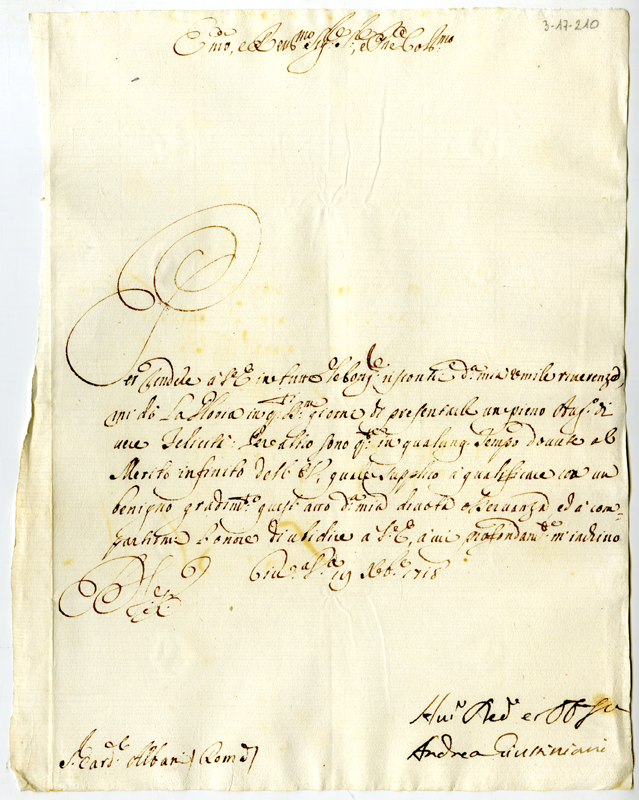 3-17-210
Emo, e Revmo Sigr. Sigr., e Pne Colmo
Per rendere a V. E. in tutte le Congre riscontri d. mia umile riverenza,
mi dò la Gloria in qti Smi giorni di presentarle un pieno Aug.o di
vere Felicità. Per altro sono qte in qualunq. Tempo dovute al
Merito infinito dell' E. V., quale supplico a qualificare con un
benigno gradimto quest' atto d. mia divota osservanza ed a com-
partirmi l'onore di ubidire a V. E., a cui profondamte m'inchino
19 Xbre 1718
V. E.
Humo Devo et Obbmo Sre
Andrea Giustiniani
Sr. Card. Albani / Roma /